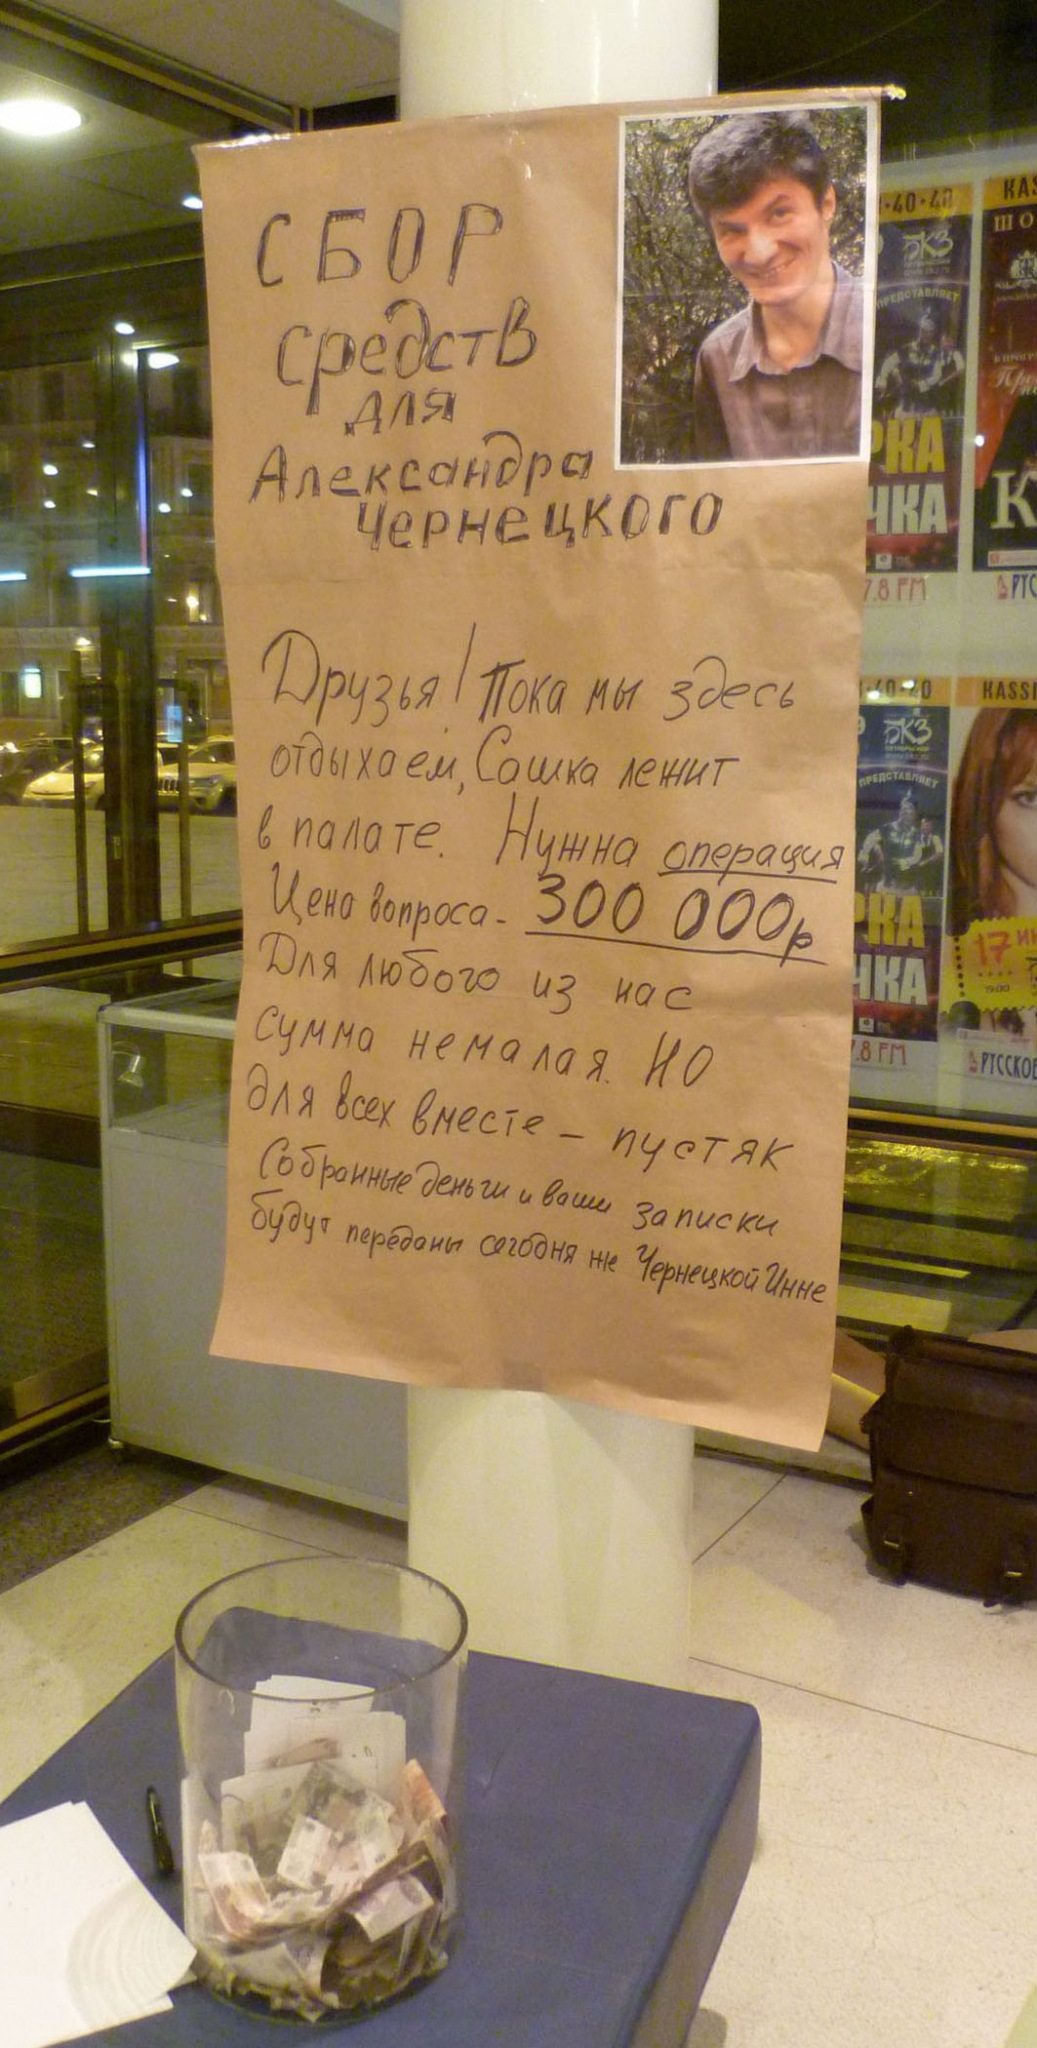 СБОР
средств
для
Александра
Чернецкого
Друзья! Пока мы здесь
отдыхаем, Сашка лежит
в палате. Нужна операция
Цена вопроса - 300 000р
Для любого из нас
сумма немалая. НО
для всех вместе – пустяк
Собранные деньги и ваши записки
будут переданы сегодня же Чернецкой Инне
40-40
KAS
БКЗ
ПРЕДСТАВЛЯЕТ
РКА
ЧКА
7.8 FM
РУС
40-40
KASSI
БКЗ
ПРЕДСТАВЛЯЕТ
РКА
ЧКА
17 ИЮ
19:00
7.8 FM
РУССКОЕ